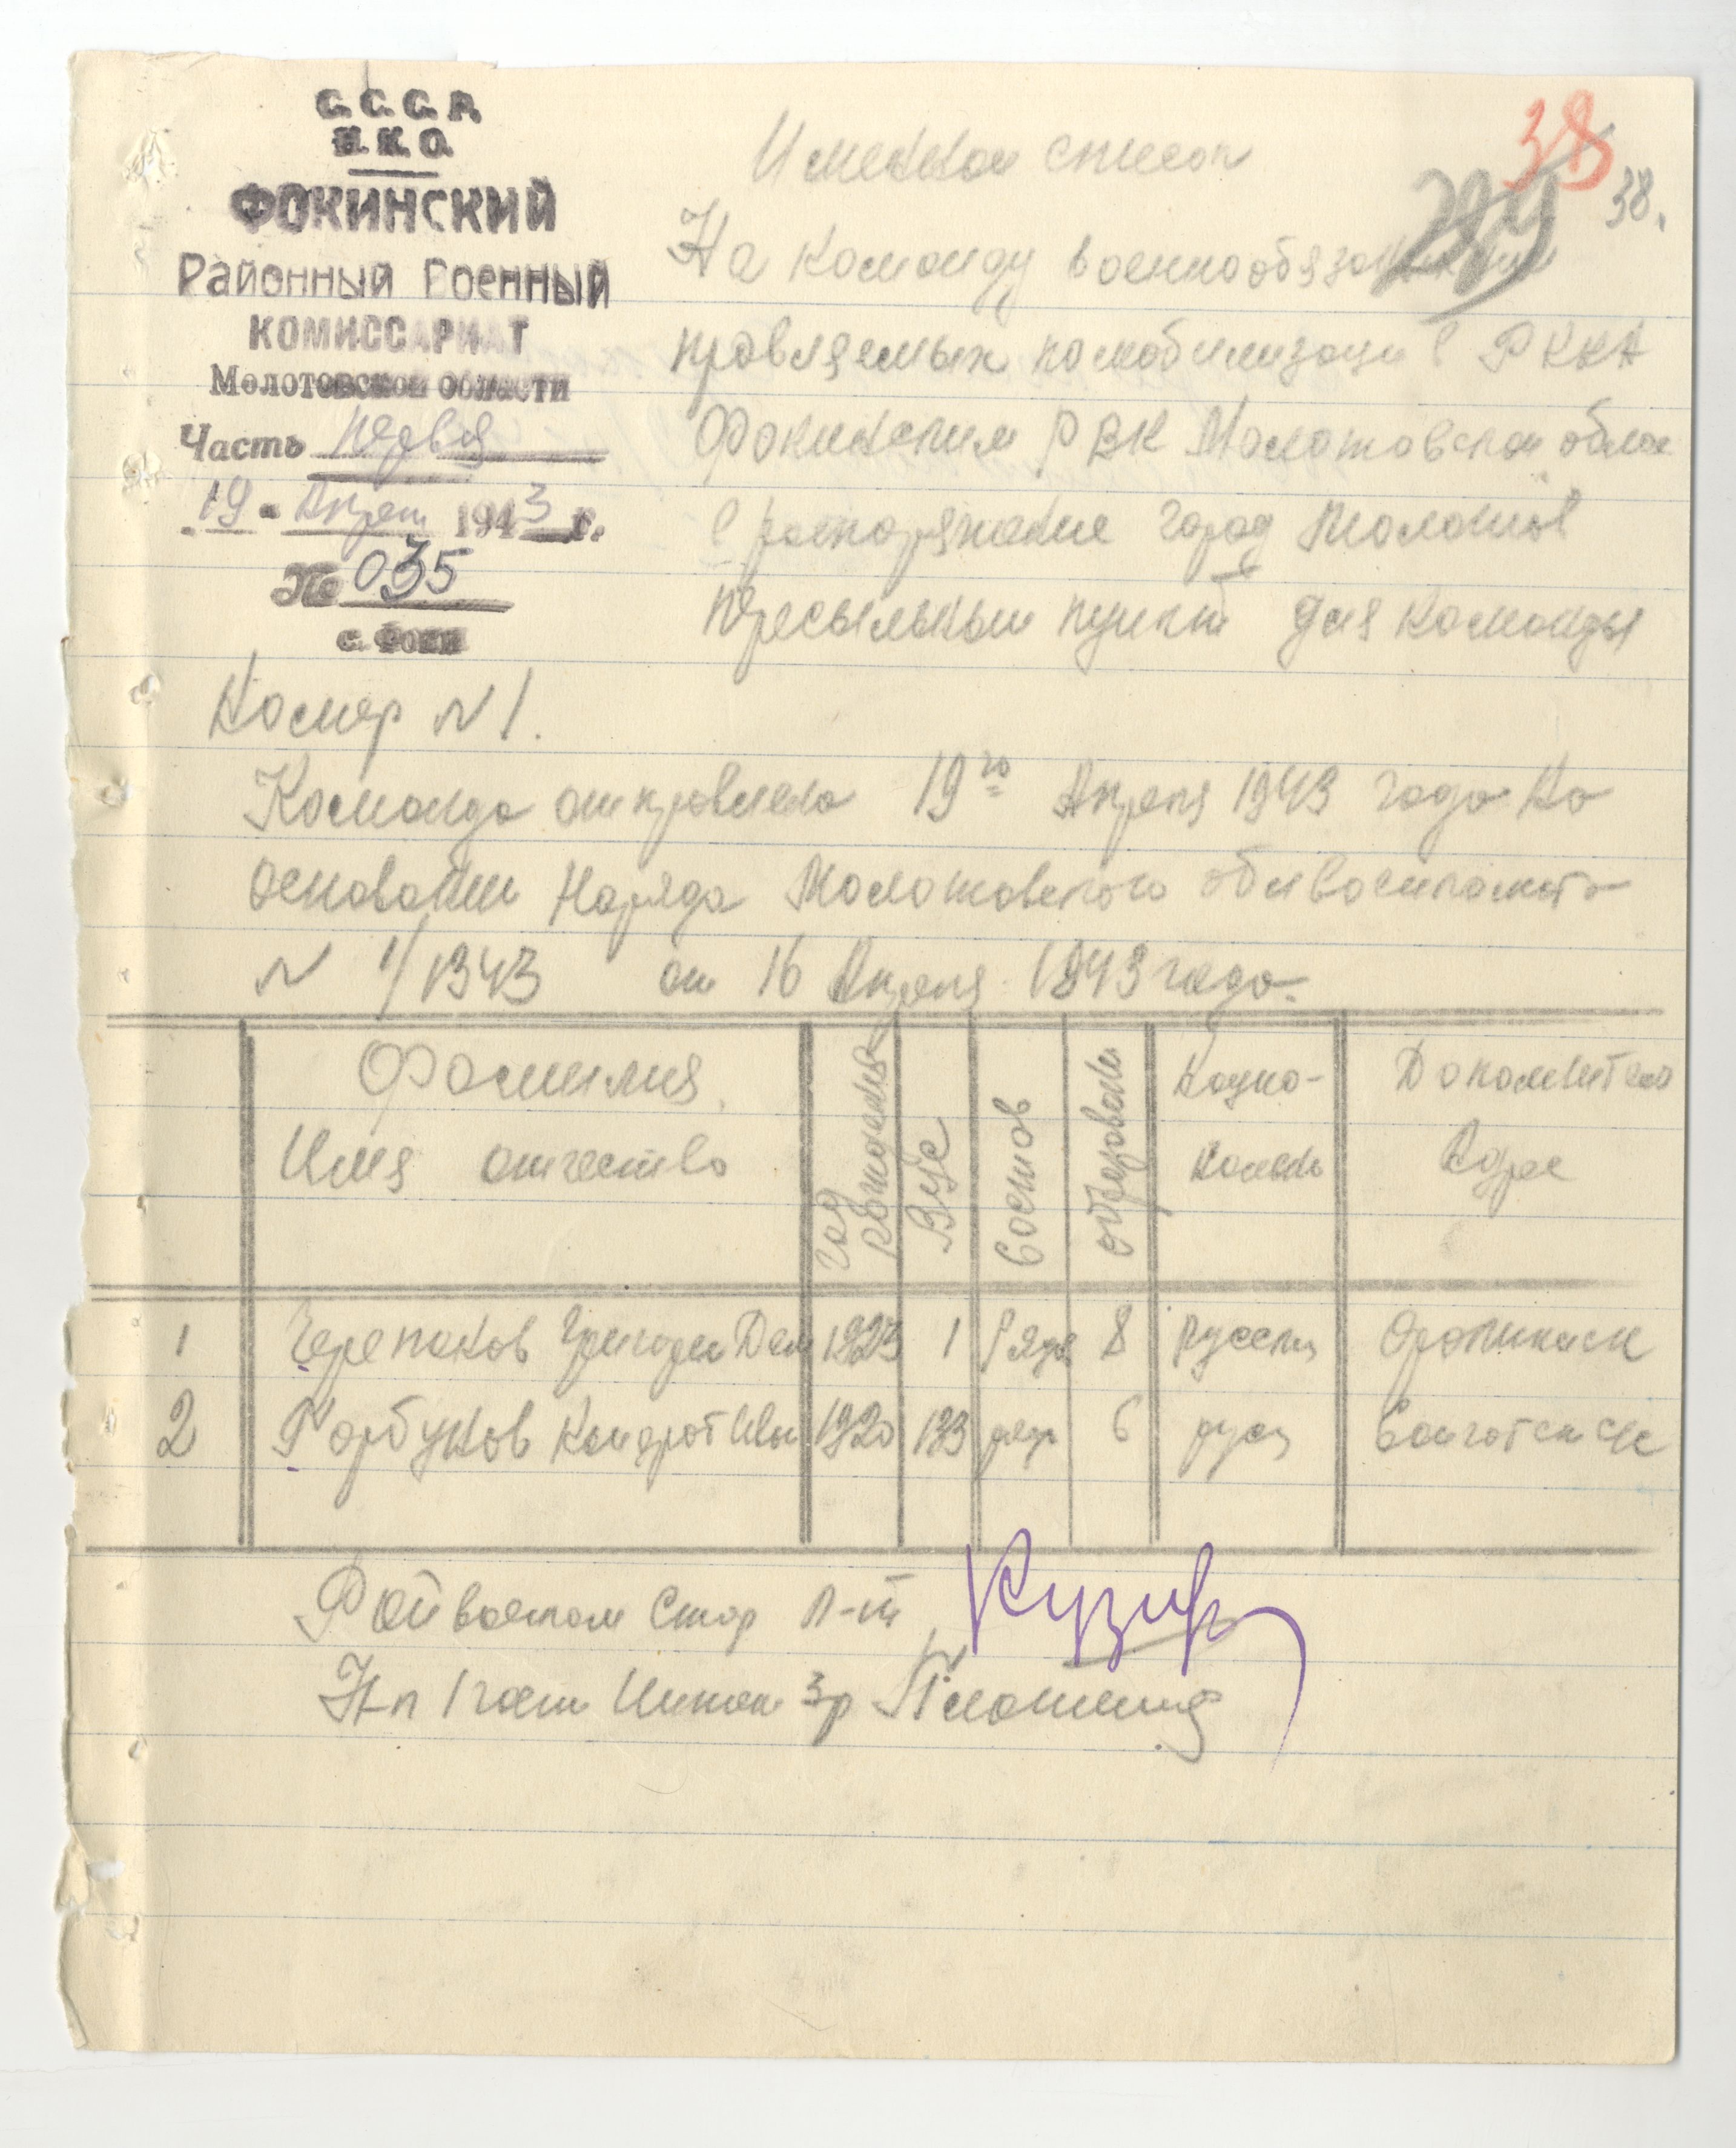 С.С.С.Р.
Н.К.О.
ФОКИНСКИЙ
Районный Военный
КОМИССАРИАТ
Молотовской области
Часть первая
19 Апреля 1943 г.
№ 035
с. Фоки
38
38.
Именной список
На команду военнообязанных
правляемых по мобилизаци в РККА
Фокинским РВК Молотовской облас
в распоряжение город Молотов
пересыльный пункт для команды
Номер № 1.
Команда отправлена 19го Апреля 1943 года На
основании Наряда Молотовского облвоенкомата
№ 1/1343 от 16 Апреля 1943 года.
Фамилия
Имя отчество
Год рождения
Вус
Состав
образован
Нацио-
нальнь
Адрес
1 Черепанов Григорий Дем 1923 1 Ряд 8 Русский
2 Горбунов Кондрат Иван 1920 133 ряд 6 русс
Райвоенком Стар л-т
Н-к 1 части